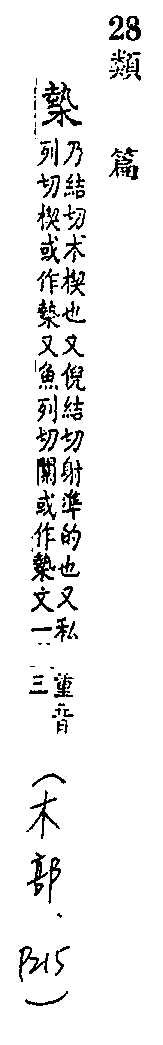 28類篇
槷
乃結切木楔也又倪結切射準的也又私
列切楔或作槷又魚列切闑或作槷文一
重音
三
(木部、P215)